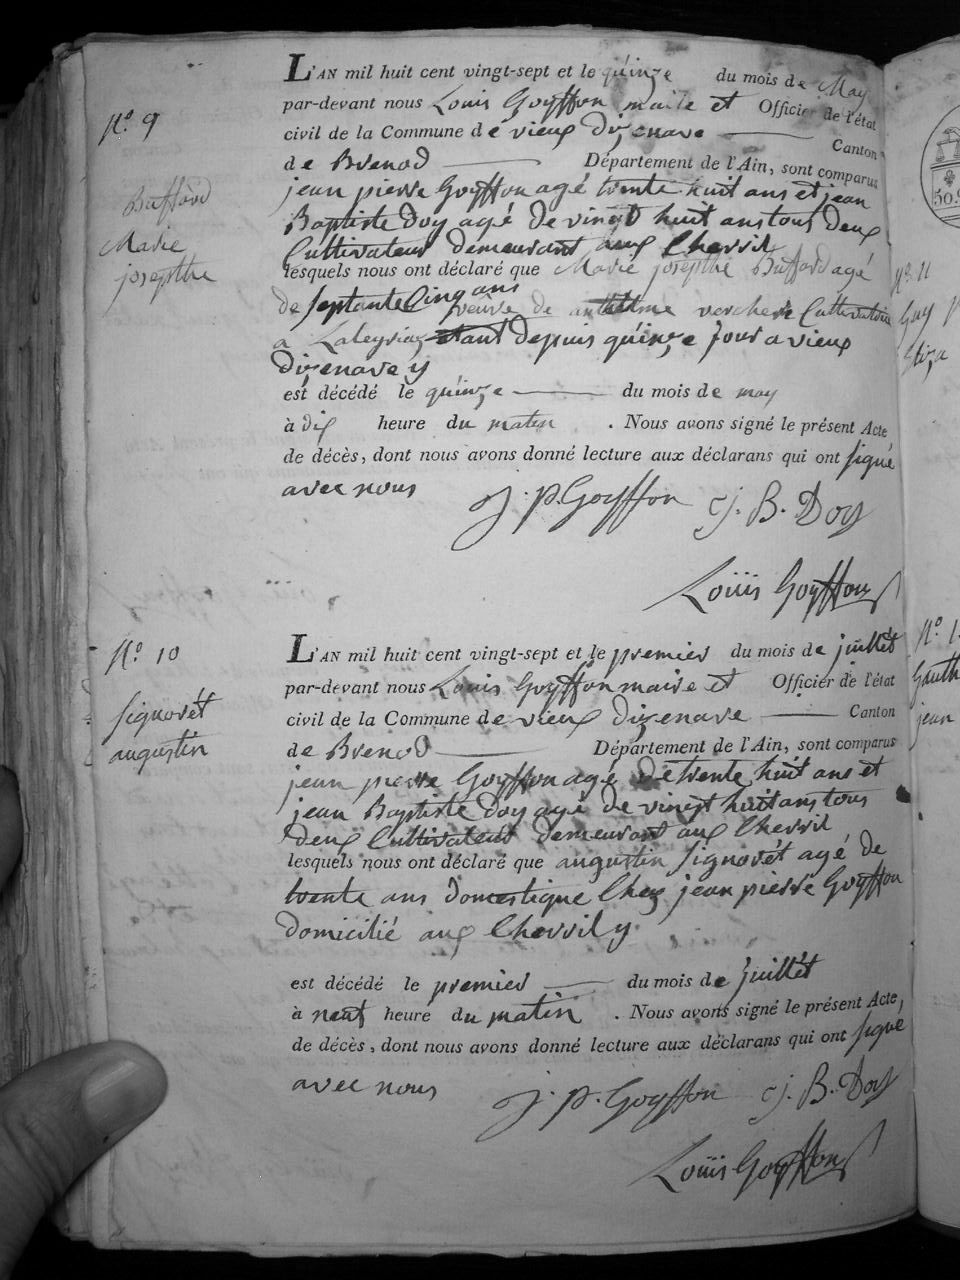 N.º 9
Buffard
Marie
josepthe
L'AN mil huit cent vingt-sept et le quinze du mois de May
par-devant nous Louis Goyffon maile et Officier de l'état
civil de la Commune de vieux dizenave Canton
de Brenod Département de l'Ain, sont comparus
jean pierre Goyffon agé trente huit ans et jean
Baptiste Doy agé de vingt huit ans tous deux
Cultivateur demeurant aux Cherril
lesquels nous ont déclaré que Marie josepthe Buffard agé
de septante Cinq ans veuve de anthelme verchere Cultivatrice
a Laleyriaz etant depuis quinze jour a vieux
dizenave y
est décédé le quinze du mois de may
à dix heure du matin . Nous avons signé le présent Acte
de décès, dont nous avons donné lecture aux déclarans qui ont signé
avec nous
J. P. Goyffon J. B. Doy
Louis Goyffon
N.º 10
signorét
augustin
L'AN mil huit cent vingt-sept et le premier du mois de juillet
par-devant nous Louis Goyffon maire et Officier de l'état
civil de la Commune de vieux dizenave Canton
de Brenod Département de l'Ain, sont comparus
jean pierre Goyffon agé de trente huit ans et
jean Baptiste Doy agé de vingt huit ans tous
deux Cultivateur demeurant aux Cherril
lesquels nous ont déclaré que augustin signorét agé de
trente ans domestique Chez jean pierre Goyffon
domicilié aux Cherril y
est décédé le premier du mois de juillet
à neuf heure du matin . Nous avons signé le présent Acte,
de décès, dont nous avons donné lecture aux déclarans qui ont signé
avec nous
J. P. Goyffon J. B. Doy
Louis Goyffon
N.º 11
Guy